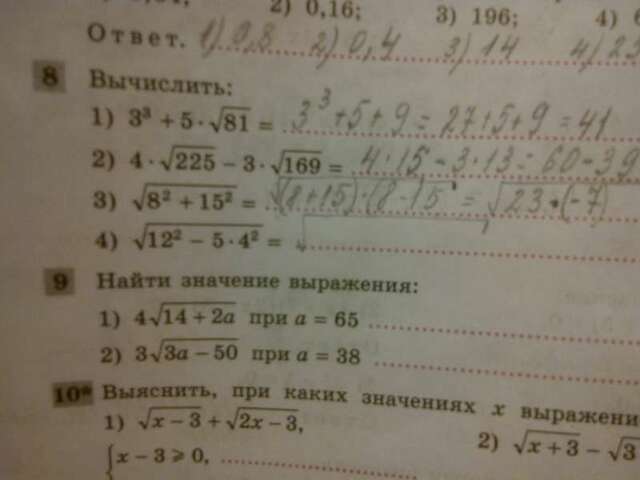 2) 0,16; 3) 196; 4)
Ответ. 1) 0,8 2) 0,4 3) 14 4)
8 Вычислить:
1) 3³ + 5 · √81 = 3³ + 5 + 9 = 27 + 5 + 9 = 41
2) 4 · √225 − 3 · √169 = 4 · 15 − 3 · 13 = 60 − 39
3) √(8² + 15²) = √(8 + 15) · (8 − 15 = √23 · (−7)
4) √(12² − 5 · 4²) = √
9 Найти значение выражения:
1) 4√(14 + 2a) при a = 65
2) 3√(3a − 50) при a = 38
10* Выяснить, при каких значениях x выражени
1) √(x − 3) + √(2x − 3), 2) √(x + 3) − √3
{x − 3 ⩾ 0,